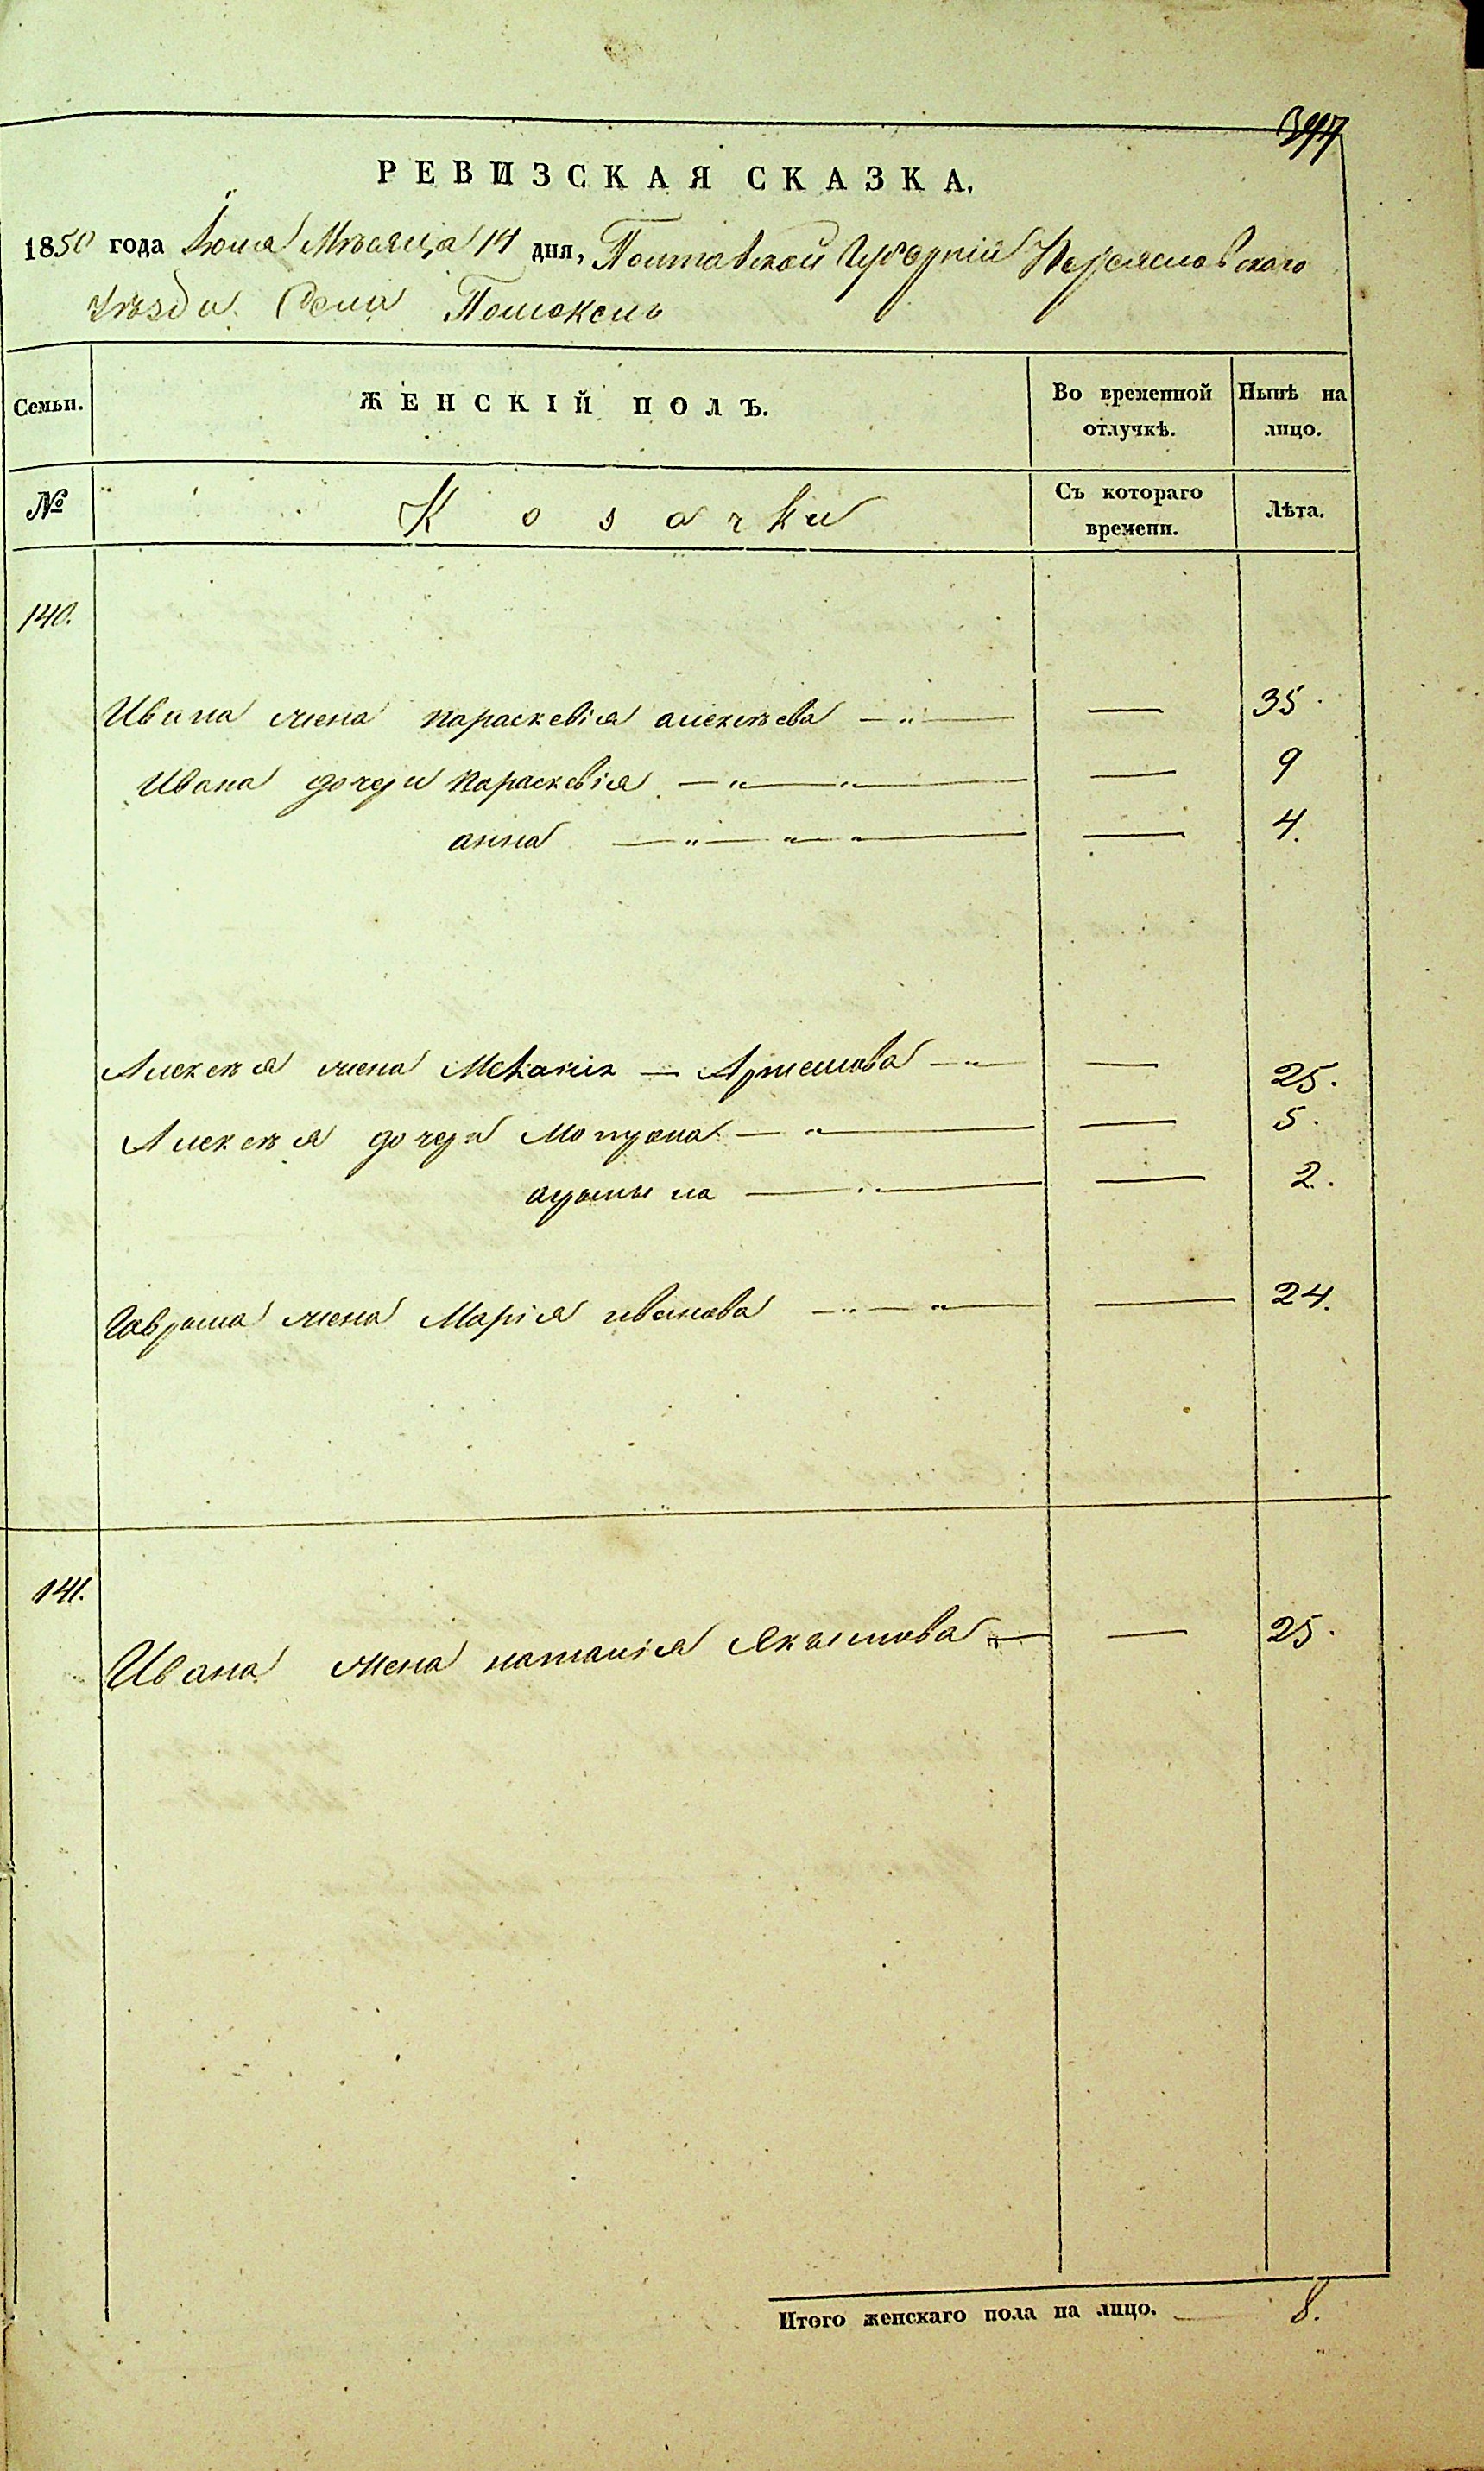 РЕВИЗСКАЯ СКАЗКА.
1850 года Іюня Мѣсяца 14 дня, Полтавской Губерніи Переясловскаго
Уѣзда Села Помоклъ
Семьи. ЖЕНСКІЙ ПОЛЪ. Во временной отлучкѣ. Нынѣ на лицо.
№ Козачки Съ котораго времени. Лѣта.
140.
Ивана жена параскевія алексѣева — 35.
Ивана дочери параскевія — 9
анна — 4.
Алексѣя жена Меланія — Артемова — 25.
Алексѣя дочери Мотрона — 5.
2.
Гаврила жена Марія иванова — 24.
141.
Ивана жена наталія Якимова — 25.
Итого женскаго пола на лицо. — 8.